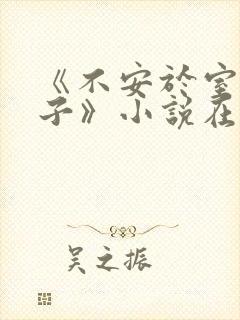 《不安於室
子》小說在
吴之振